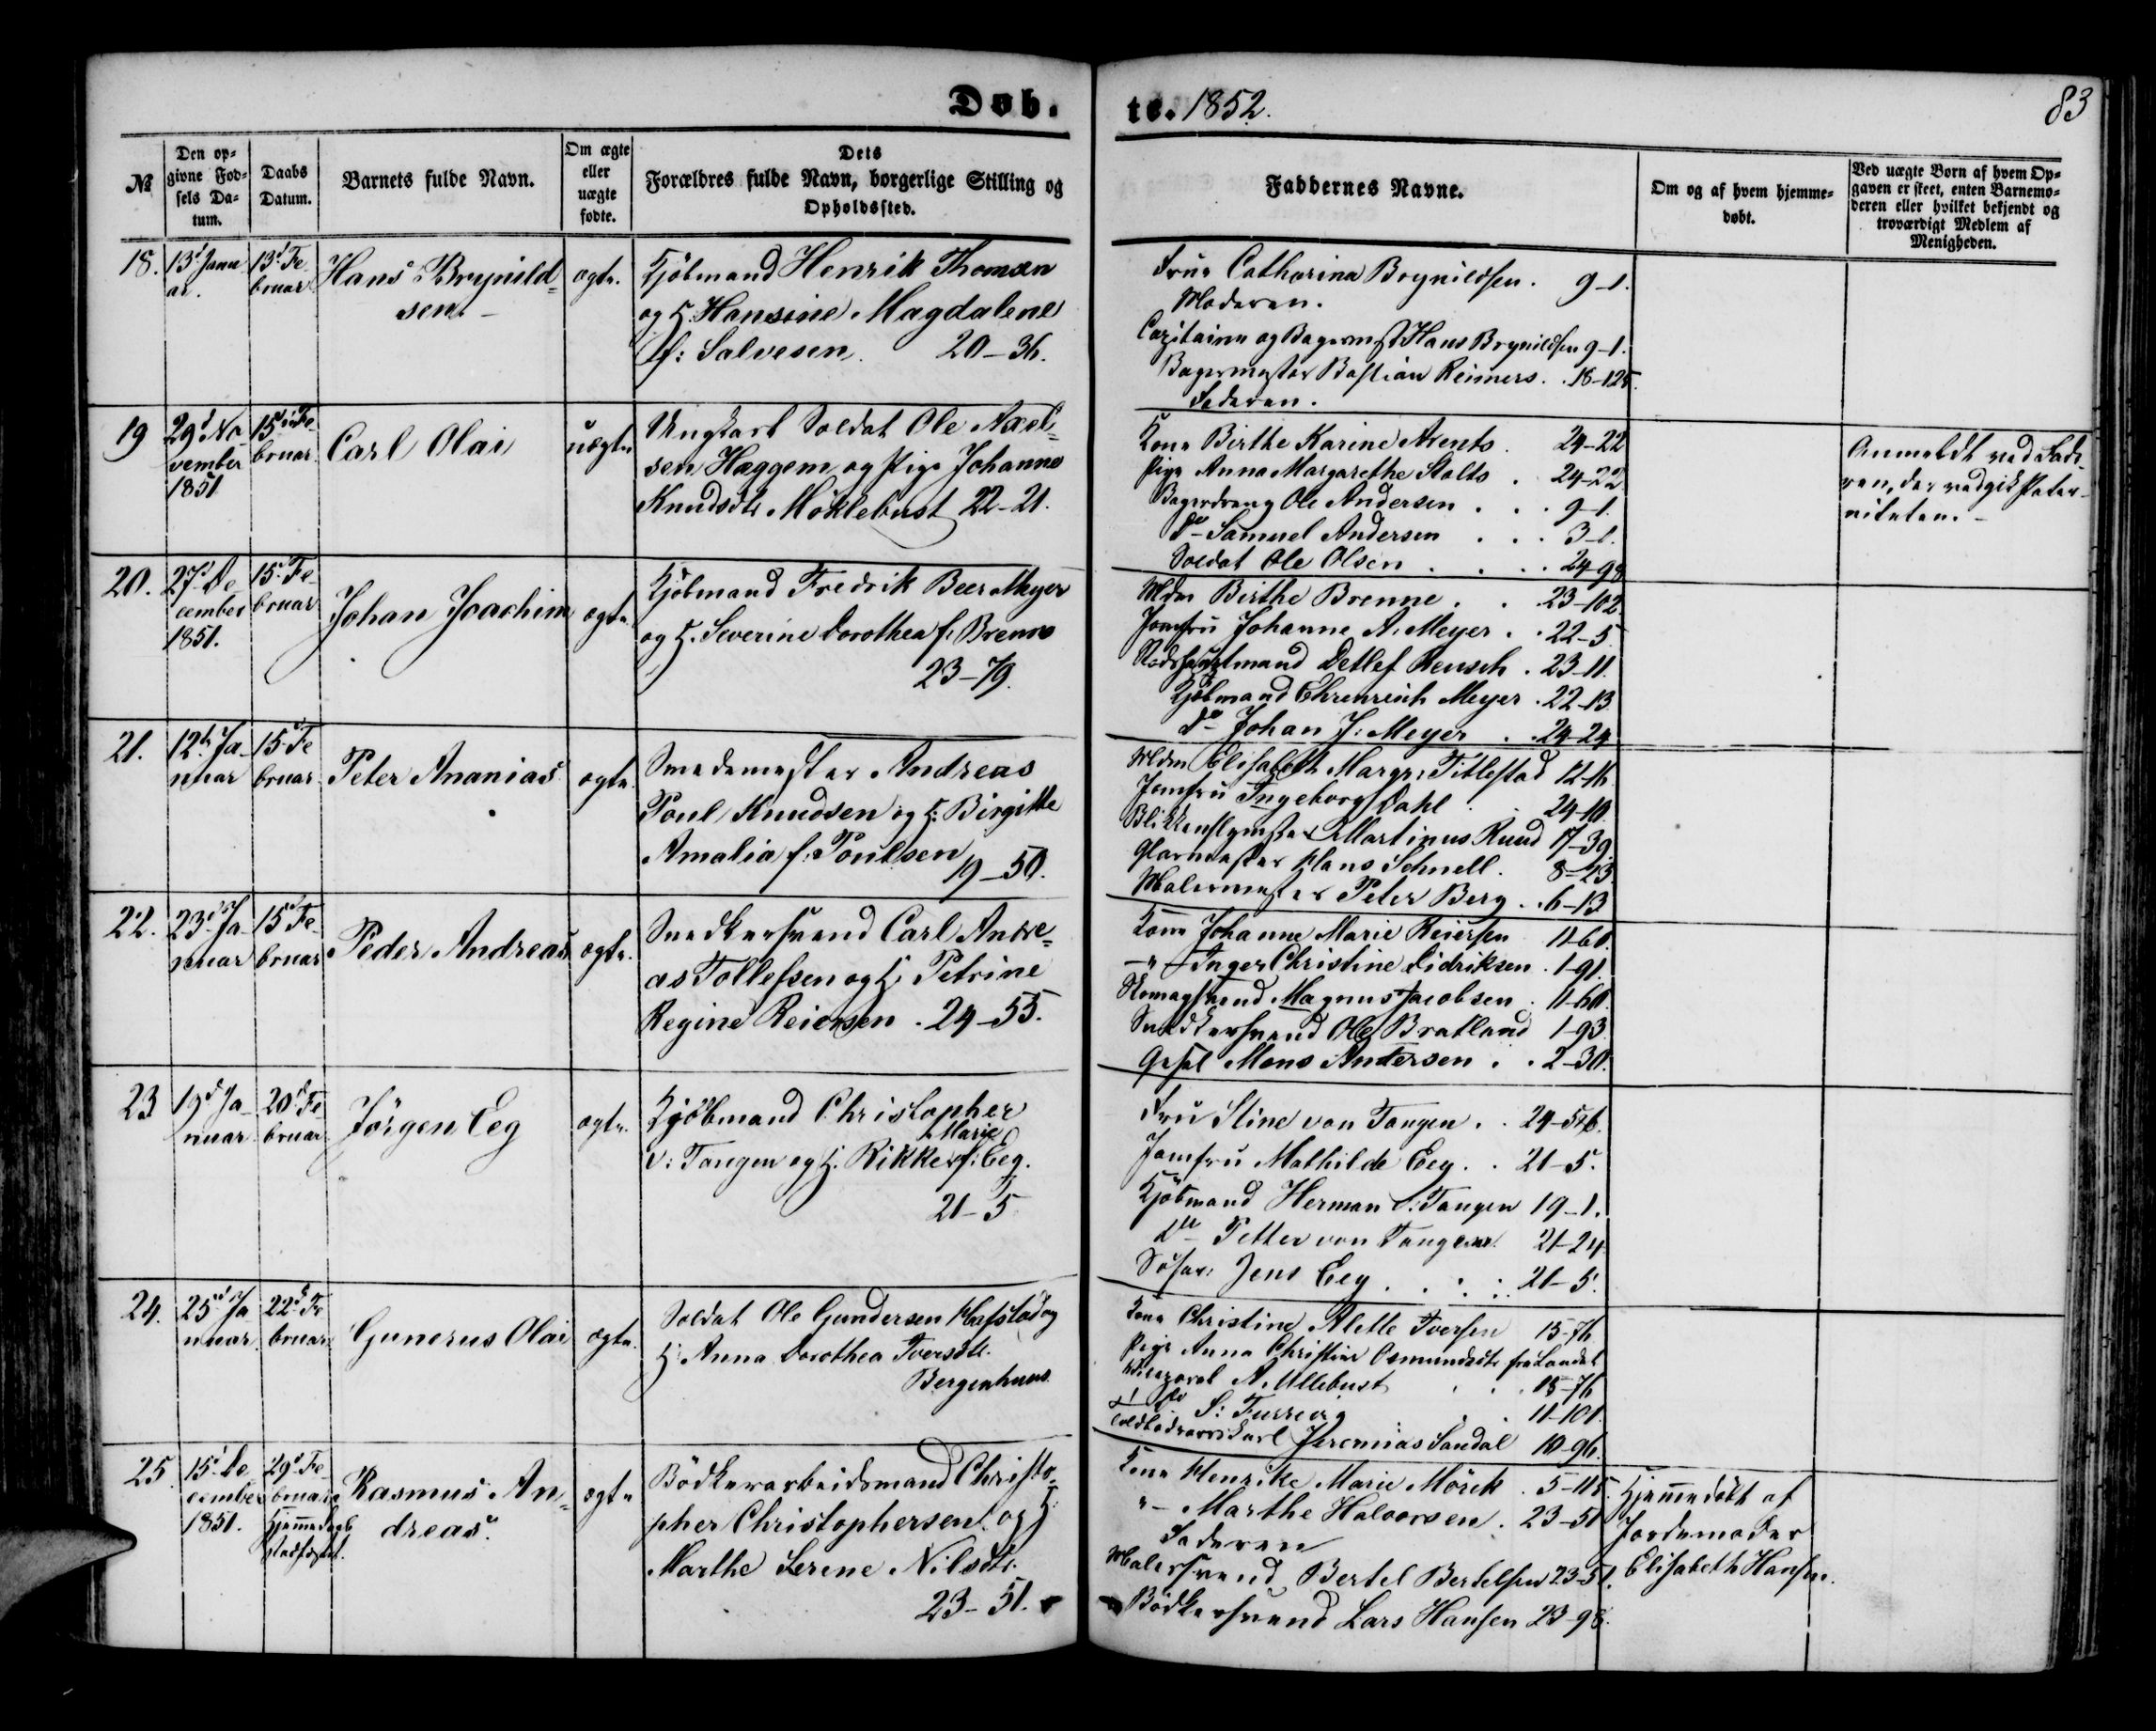 Døb.
te. 1852.
83
№
Den op-
givne Fød-
sels Da-
tum.
Daabs
Datum.
Barnets fulde Navn.
Om ægte
eller
uægte
fødte.
Dets
Forældres fulde Navn, borgerlige Stilling og
Opholdssted.
Faddernes Navne.
Om og af hvem hjemme-
døbt.
Ved uægte Børn af hvem Op-
gaven er skeet, enten Barnemo-
deren eller hvilket bekjendt og
troværdigt Medlem af
Menigheden.
18.
13d Janu
ar.
13d Fe
bruar
Hans Brynild-
sen. –
ægte.
Kjöbmand Henrik Thomsen
og H. Hansine Magdalene
f: Salvesen. 20–36.
Frue Catharina Brynildsen. 9–1.
Moderen.
Capitaine og Bagermst Hans Brynildsen 9–1.
Bagermester Bastian Reimers. 18–125.
Faderen.
19
29d No-
vember
1851
15d Fe-
bruar
Carl Olai
uægte
Ungkarl Soldat Ole Axel-
sen Hæggem og Pige Johanne
Knudsdtr Möklebust 22–21.
Kone Birthe Karine Arents. 24–22
Pige Anna Margarethe Stolts. 24–22
Bagerdreng Ole Andersen . . . 9–1.
do Samuel Andersen . . . 3–1.
Soldat Ole Olsen . . . . 24–98
Anmeldt ved Fade-
ren, der vedgik Pater-
niteten. –
20.
27d De
cember
1851.
15d Fe-
bruar
Johan Joachim
ægte
Kjöbmand Fredrik Beer Meyer
og H. Severine Dorothea f: Brenne
23–79.
Mdm Birthe Brenne . . 23–102
Jomfru Johanne A. Meyer . . 22–5
Detlef Reusch . 23–11.
Kjöbmand Ehrenreich Meyer . 22–13
do Johan J: Meyer . . 24–24
21.
12t Ja-
nuar
15d Fe
bruar
Peter Ananias
ægte
Smedemester Andreas
Poul Knudsen og H: Birgitte
Amalia f: Poulsen 19–50.
Mdm Elisabeth Margr. Titlestad 12–16
Jomfru Ingeborg Dahl . . 24–10.
Martinus Ruud 17–39.
Glarmester Hans Schnell. 8–23
Malermester Peter Berg . . 6–13
22.
23d Ja-
nuar
15d Fe-
bruar
Peder Andreas
ægte.
Snedkersvend Carl Andre-
as Tollefsen og H. Petrine
Regine Reiersen . 24–55.
Kone Johanne Marie Reiersen 11–60.
–"– Inger Christine Didriksen . 1–91.
Skomagsvend Magnus Jacobsen . 11–60.
Snedkersvend Ole Bratland 1–93
Gesel Mons Andersen . . 2–30.
23
19d Ja-
nuar
20d Fe
bruar
Jörgen Eeg
ægte.
Kjöbmand Christopher
Marie
v: Tangen og H. Rikke f: Eeg.
21–5
Fru Stine von Tangen . . 24–56.
Jomfru Mathilde Eeg . . 21–5.
Kjöbmand Herman v: Tangen 19–1.
do Petter von Tangen 21–24
Jens Eeg . . . . 21–5.
24.
25d Ja
nuar
22d Fe
bruar
Gunerus Olai
ægte.
Soldat Ole Gundersen Hafstad og
H. Anna Dorothea Iversdtr.
Bergenhuus
Kone Christine Alette Iversen 15–76
Pige Anna Christine Osmundsdtr fra Landet
A. Ullebust . . . 15–76
do S: Furreög . . 11–101.
Jeremias Sandal 10–96.
25
15d De
cember
1851.
29d Fe-
bruar
Hjemmedaab
stadfæstet.
Rasmus An-
dreas.
ægte
Bödkerarbeidsmand Christo-
pher Christophersen og H:
Marthe Serene Nilsdtr.
23–51.
Kone Henrike Marie Mörch . 5–115.
"– Marthe Halvorsen . 23–51
Faderen
Malersvend Bertel Bertelsen 23–51.
Bödkersvend Lars Hansen 23–98.
Hjemmedöbt af
Jordemoder
Elisabeth Hansen.